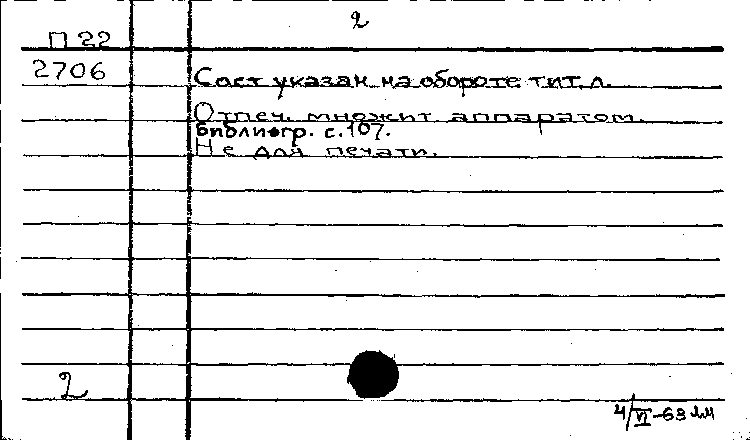 2
П 22
2706
Сост указан на обороте тит. л.
Отпеч. множит аппаратом.
Библиогр. с. 107.
Не для печати.
2
4/VI-63